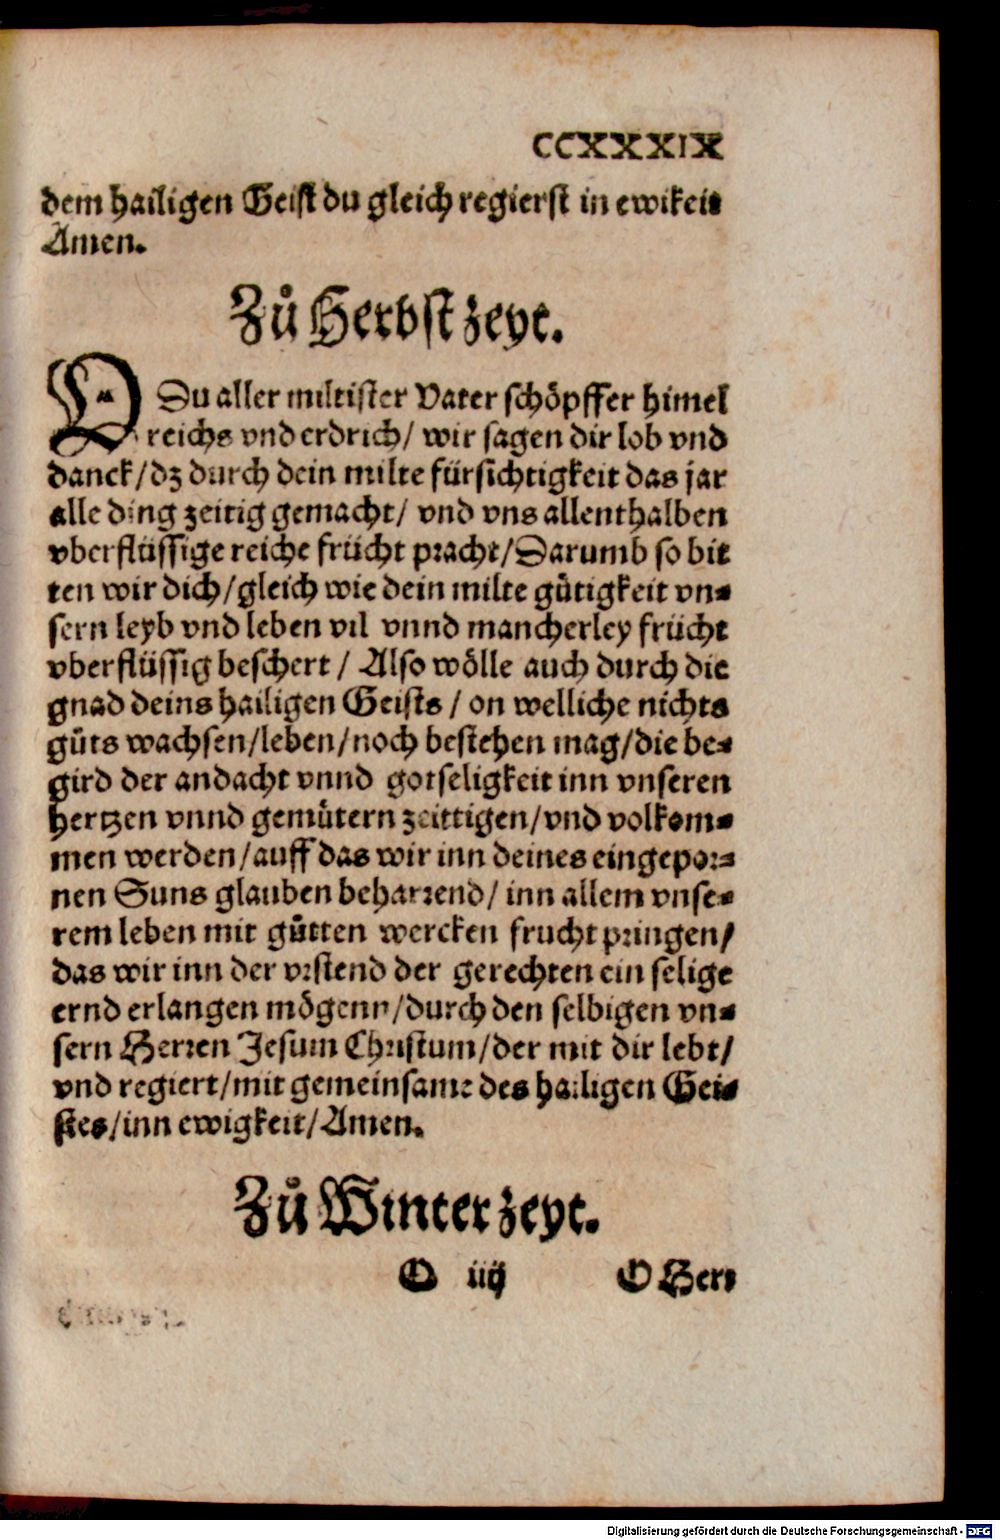 CCXXXIX
dem hailigen Geist du gleich regierst in ewikeit
Amen.
Zů Herbst zeyt.
O Du aller miltister Vater schöpffer himel
reichs vnd erdrich/ wir sagen dir lob vnd
danck/dz durch dein milte fürsichtigkeit das jar
alle ding zeitig gemacht/ vnd vns allenthalben
vberflüssige reiche frücht pracht/Darumb so bit
ten wir dich/gleich wie dein milte gůtigkeit vn-
sern leyb vnd leben vil vnnd mancherley frücht
vberflüssig beschert / Also wölle auch durch die
gnad deins hailigen Geists / on welliche nichts
gůts wachsen/leben/noch bestehen mag/die be-
gird der andacht vnnd gotseligkeit inn vnseren
hertzen vnnd gemůtern zeittigen/vnd volkom-
men werden/auff das wir inn deines eingepor-
nen Suns glauben beharrend/ inn allem vnse-
rem leben mit gůtten wercken frucht pringen/
das wir inn der vrstend der gerechten ein selige
ernd erlangen mögenn/durch den selbigen vn-
sern Herren Jesum Christum/der mit dir lebt/
vnd regiert/mit gemeinsame des hailigen Gei-
stes/inn ewigkeit/Amen.
Zů Winter zeyt.
O iiij O Herr
Digitalisierung gefördert durch die Deutsche Forschungsgemeinschaft - DFG